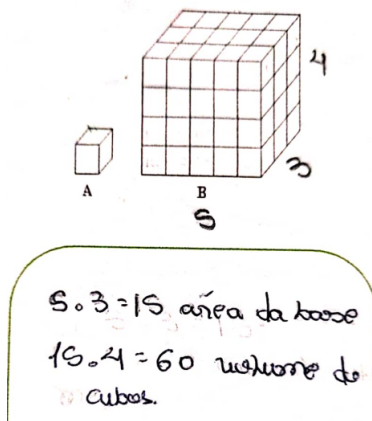 4
3
A B
5
5.3=15 área da base
15.4=60 volume do
cubos.